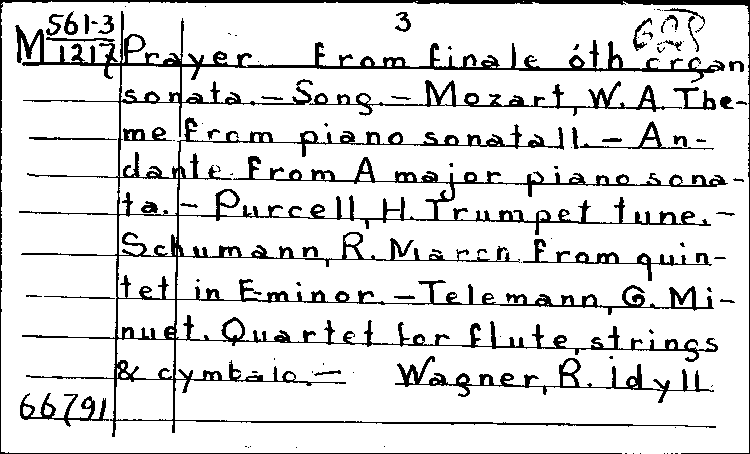 3
M 561-3
1217
Prayer from finale 6th organ
sonata.-Song.- Mozart, W. A. The-
me from piano sonata II.- An-
dante from A major piano sona-
ta.- Purcell, H. Trumpet tune.-
Schumann, R. March from quin-
tet in E minor.-Telemann, G. Mi-
nuet. Quartet for flute, strings
& cymbalo.- Wagner, R. Idyll
66791